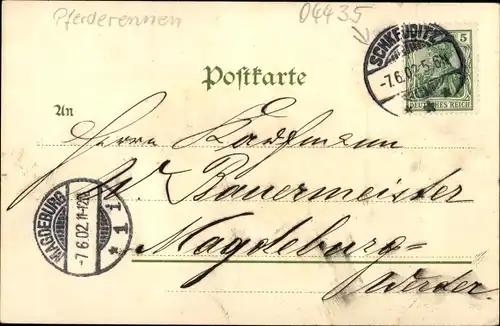 Pferderennen
04435
SCHKEUDITZ
-7.6.02.5-6N
5
DEUTSCHES REICH
Postkarte
An
Herrn Kaufmann
W. Bauermeister
MAGDEBURG
-7 6.02.11-12N
* 1 1
Magdeburg=
Werder.